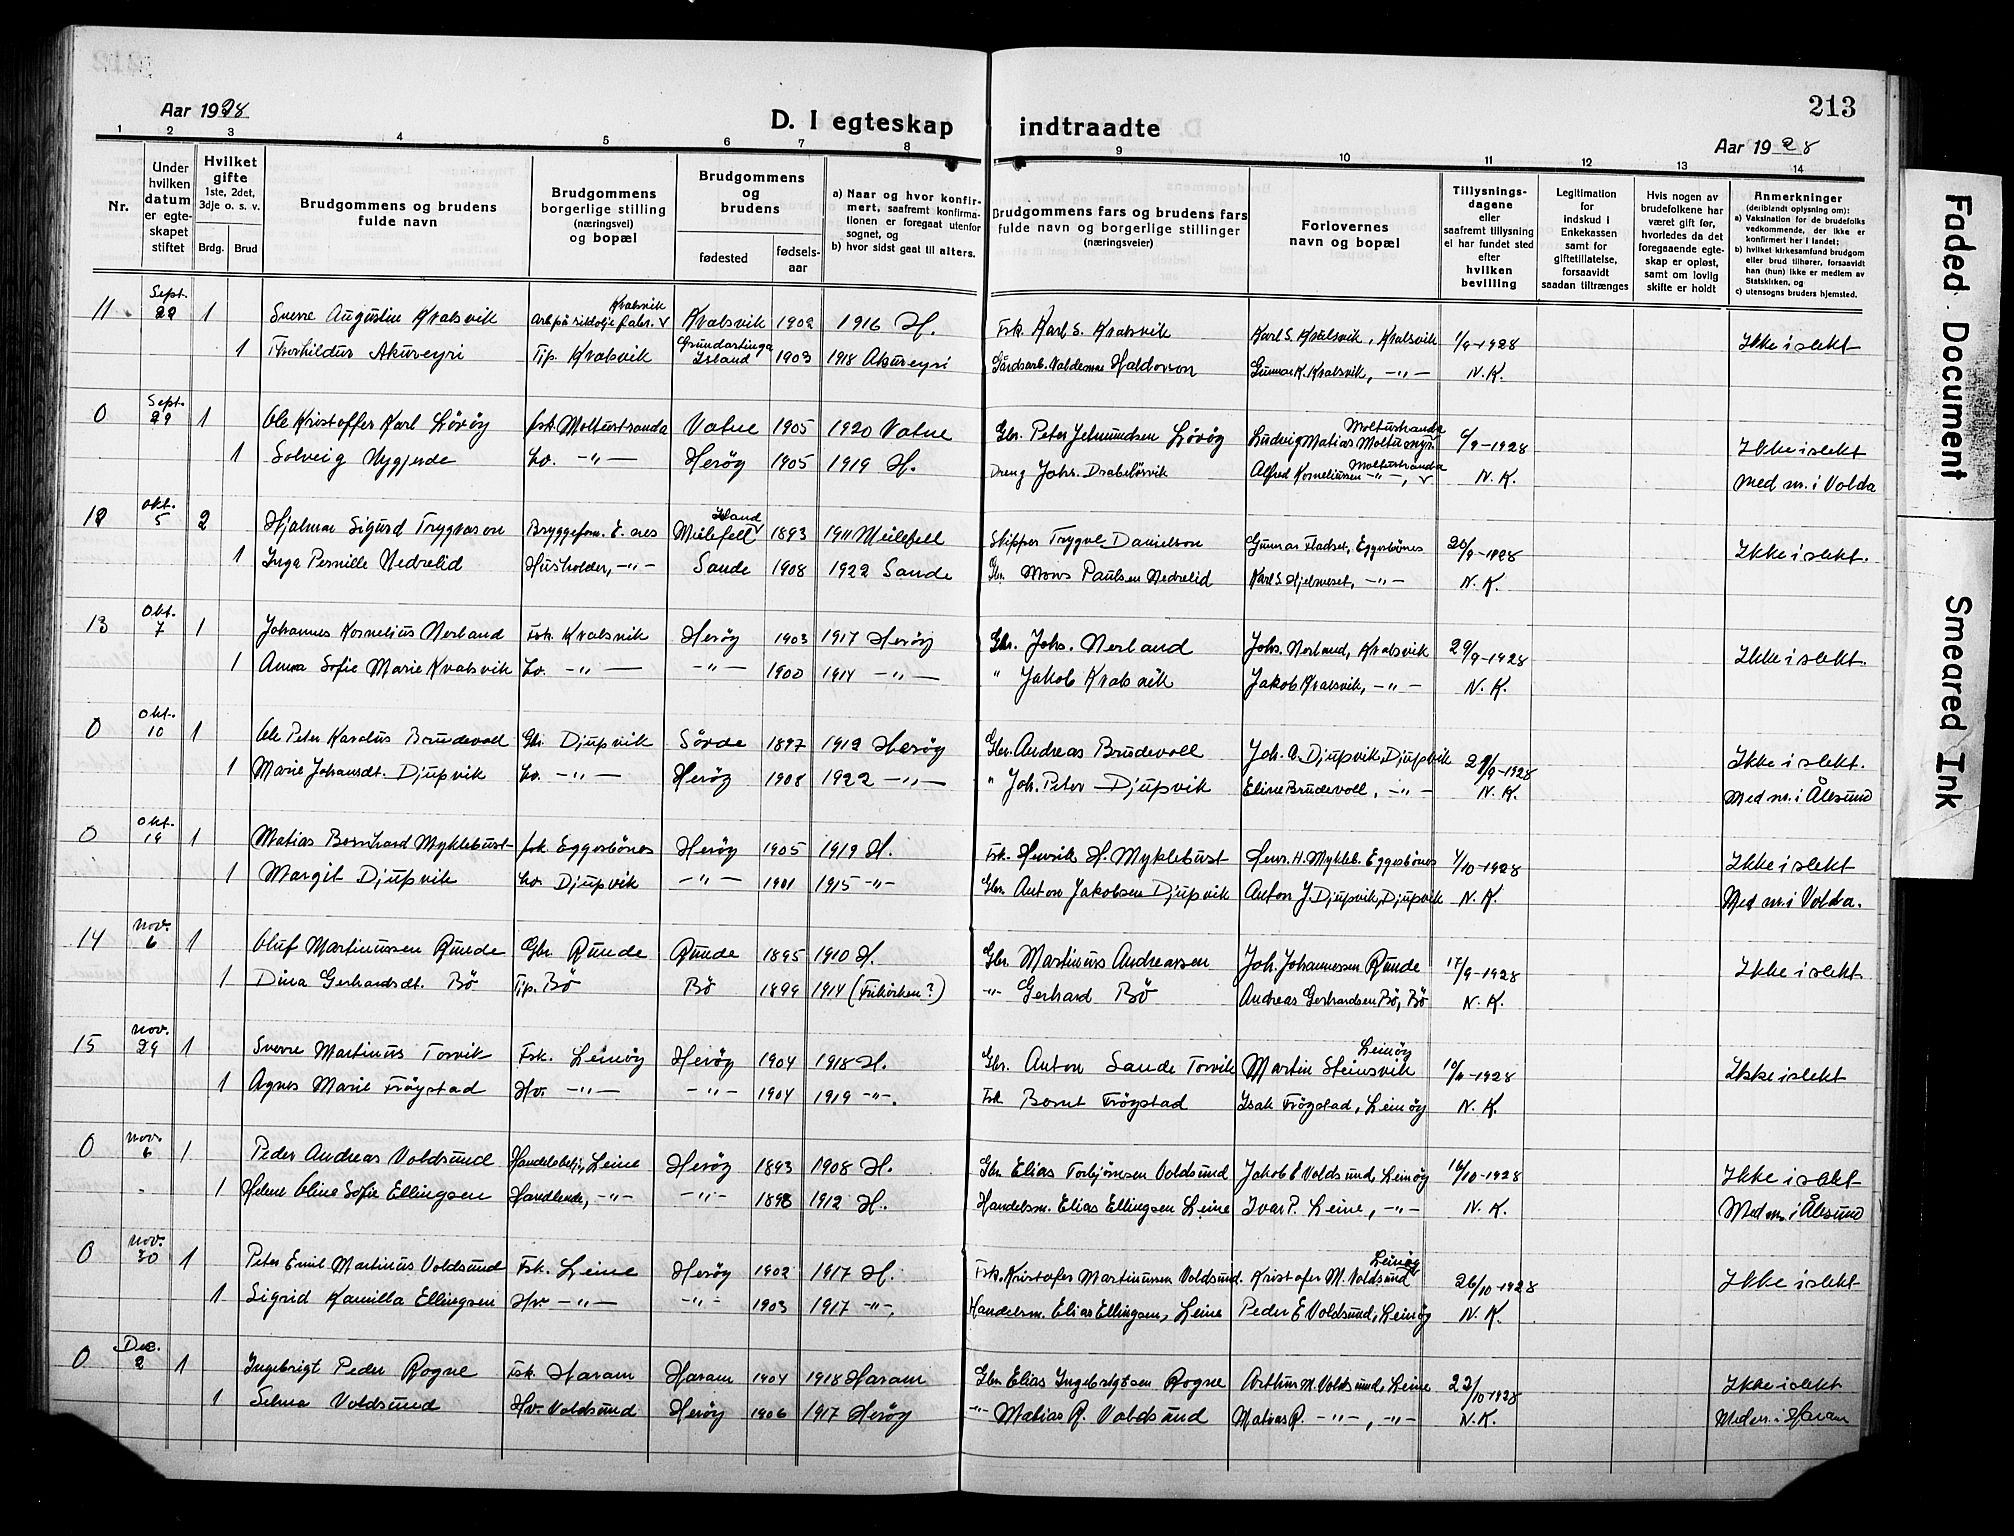 213
Aar 1928
D. I egteskap indtraadte
Aar 1928
1 2 3 4 5 6 7 8 9 10 11 12 13 14
Nr.
Under hvilken datum er egteskapet stiftet
Hvilket gifte
1ste, 2det, 3dje o. s. v.
Brdg. Brud
Brudgommens og brudens fulde navn
Brudgommens borgerlige stilling (næringsvei) og bopæl
Brudgommens og brudens
fødested
fødsels-aar
a) Naar og hvor konfirmert, saafremt konfirmationen er foregaat utenfor sognet, og
b) hvor sidst gaat til alters.
Brudgommens fars og brudens fars fulde navn og borgerlige stillinger (næringsveier)
Forlovernes navn og bopæl
Tillysnings-dagene eller saafremt tillysning ei har fundet sted efter hvilken bevilling
Legitimation for indskud i Enkekassen samt for giftetillatelse, forsaavidt saadan tiltrænges
Hvis nogen av brudefolkene har været gift før, hvorledes da det foregaaende egteskap er opløst, samt om lovlig skifte er holdt
Anmerkninger
(deriblandt oplysning om):
a) Vaksination for de brudefolks vedkommende, der ikke er konfirmert her i landet;
b) hvilket kirkesamfund brudgom eller brud tilhører, forsaavidt han (hun) ikke er medlem av Statskirken, og
c) utensogns bruders hjemsted.
11 Sept. 22 1 Sverre Augustin Kvalsvik Arb. på sildolje fabr. Kvalsvik Kvalsvik 1902 1916 H. Fsk. Karl S. Kvalsvik Karl S. Kvalsvik, Kvalsvik 1/9-1928 Ikke i slekt
1 Thorhildur Akureyri Tjp. Kvalsvik Grundartinga Island 1903 1918 Akureyri Gårdsarb. Valdemar Haldorson Gunnar K. Kvalsvik, -"- N. K.
0 Sept. 29 1 Ole Kristoffer Karl Lövöy fsk. Molturtranda Vatne 1905 1920 Vatne Gbr. Peter Jetmundsen Lövöy Ludvig Matias Moltumyr. Moltustranda 6/9-1928 Ikke i slekt
1 Solveig Nygjerde Hv. -"- Herøy 1905 1919 H. Dreng Johs. Drabeløsvik Alfred Korneliussen -"-, Moltustranda N. K. Med nr. i Volda
12 Okt. 5 2 Hjalmar Sigurd Trygvason Bryggeform. E.nes Meilefell Island 1893 1911 Meilefell Skipper Trygve Danielson Gunnar Fladset, Eggesbönes 20/9-1928 Ikke i slekt.
1 Inga Pernille Nedrelid Husholder, -"- Sande 1908 1922 Sande Gbr. Mons Paulsen Nedrelid Karl S. Hjelmeset, -"- N. K.
13 Okt. 7 1 Johannes Kornelius Nerland Fsk. Kvalsvik Herøy 1903 1917 Herøy Gbr. Johs. Nerland Johs. Nerland, Kvalsvik 29/9-1928 Ikke i slekt.
1 Anna Sofie Marie Kvalsvik Hv. -"- -"- 1900 1914 -"- " Jakob Kvalsvik Jakob Kvalsvik, -"- N. K.
0 Okt. 10 1 Ole Peter Karolus Brudevoll Gbr. Djupvik Sövde 1897 1912 Herøy Gbr. Andreas Brudevoll Joh. A. Djupvik, Djupvik 21/9-1928 Ikke i slekt.
1 Marie Johansdt. Djupvik Hv. -"- Herøy 1908 1922 -"- " Joh. Peter Djupvik Eline Brudevoll, -"- N. K. Med nr. i Ålesund
0 Okt. 19 1 Matias Bernhard Myklebust fsk. Eggesbönes Herøy 1905 1919 H. Fsk. Henrik H. Myklebust Henr. H. Mykleb. Eggesbönes 4/10-1928 Ikke i slekt
1 Margit Djupvik Hv. Djupvik -"- 1901 1915 -"- Gbr. Anton Jakobsen Djupvik Anton J. Djupvik, Djupvik N. K. Med nr. i Volda.
14 Nov. 6 1 Oluf Martinussen Runde Gbr. Runde Runde 1895 1910 H. Gbr. Martinus Andreassen Joh. Johannessen Runde 17/9-1928 Ikke i slekt
1 Dina Gerhardsdt. Bö Tjp. Bö Bö 1899 1914 (Frikirken?) -"- Gerhard Bö Andreas Gerhardsen Bö, Bö N. K.
15 Nov. 29 1 Sverre Martinus Torvik Fsk. Leinöy Herøy 1904 1918 H. Gbr. Anton Sande Torvik Martin Steinsvik Leinöy 10/11-1928 Ikke i slekt
1 Agnes Marie Fröystad Hv. -"- -"- 1904 1919 -"-. Fsk Bernt Fröystad Isak Fröystad, Leinöy N. K.
0 Nov. 6 1 Peder Andreas Voldsund Handelsbetj., Leine Herøy 1893 1908 H. Gbr Elias Torbjörnsen Voldsund Jakob E. Voldsund, Leinöy 16/10-1928 Ikke i slekt
1 Helene Oline Sofie Ellingsen Handlende, -"- -"- 1898 1912 H. Handelsm. Elias Ellingsen Leine Ivar P. Leine, -"- N. K. Med nr. i Ålesund
0 Nov. 30 1 Peter Emil Martinus Voldsund Fsk. Leine Herøy 1902 1917 H. Fsk. Kristofer Martinussen Voldsund. Kristofer M. Voldsund Leinöy 26/10-1928 Ikke i slekt
1 Sigrid Kamilla Ellingsen Hv -"- -"- 1903 1917 -"-. Handelsm. Elias Ellingsen, Leine Peder E Voldsund, Leinöy N. K.
0 Des. 2 1 Ingebrigt Peder Rogne Fsk. Haram Haram 1904 1918 Haram Gbr Elias Ingebrigtsen Rogne Arthur M. Voldsund, Leine 22/10-1928 Ikke i slekt
1 Selma Voldsund Hv. Voldsund Herøy 1906 1917 Herøy -"- Matias R. Voldsund Matias R. -"-, -"- N. K. Med nr. i Haram
Faded Document
Smeared Ink